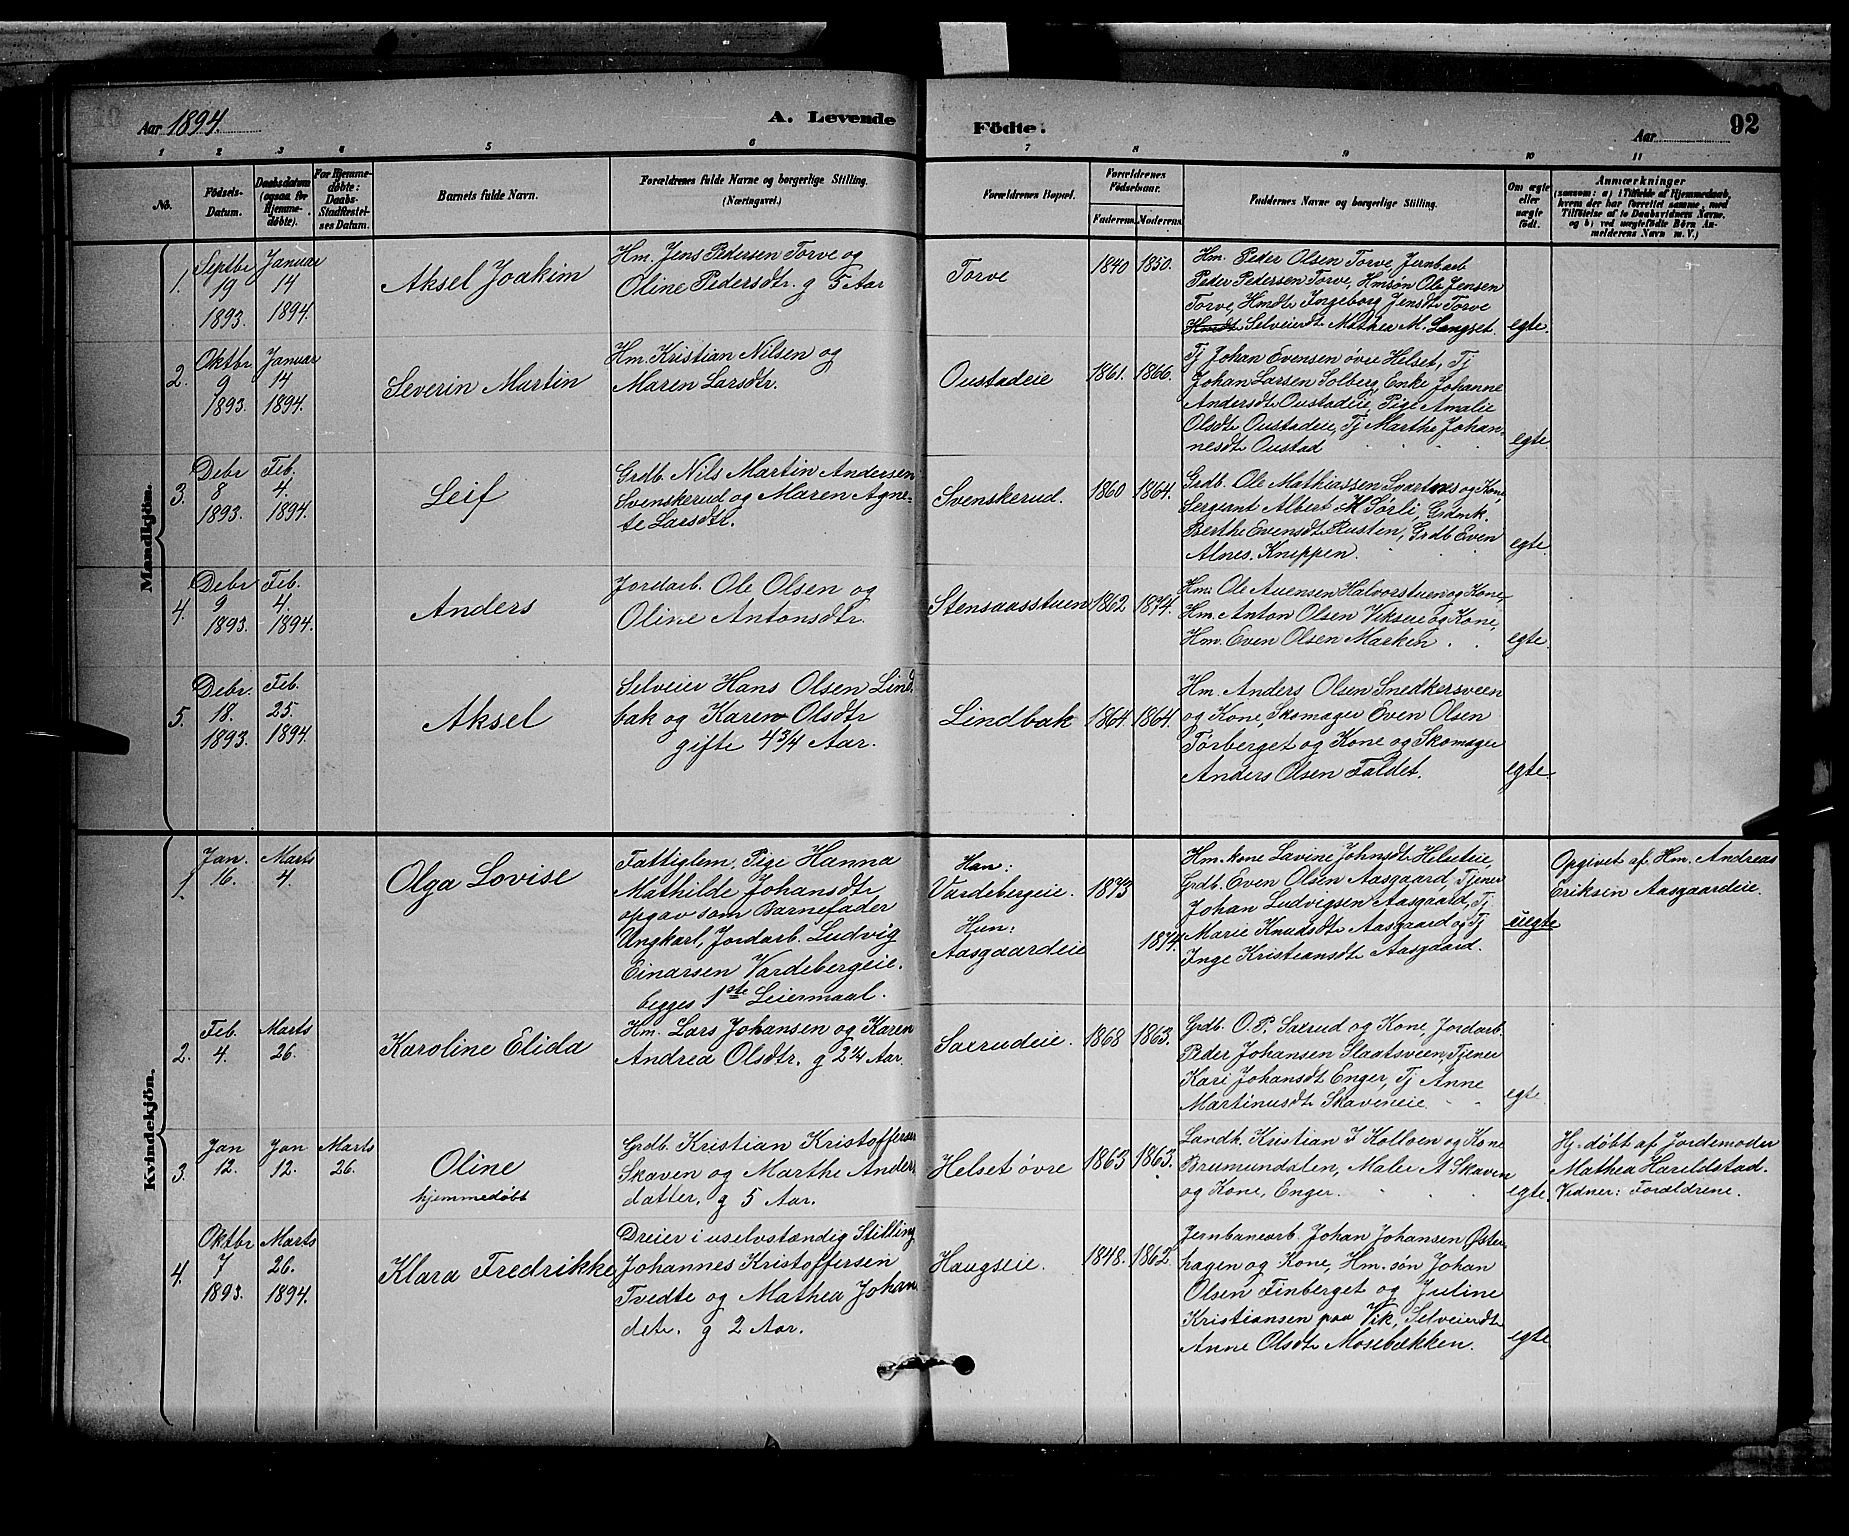 Aar 1894.
A. Levende
Födte.
Aar
92
1 2 3 4 5 6 7 8 9 10 11
No.
Födsels-
Datum.
Daabsdatum
(ogsaa for
Hjemme-
döbte).
For Hjemme-
döbte:
Daabs-
Stadfæstel-
ses Datum.
Barnets fulde Navn.
Forældrenes fulde Navne og borgerlige Stilling.
(Næringsvei.)
Forældrenes Bopæl.
Forældrenes
Födselsaar.
Faderens. Moderens.
Faddernes Navne og borgerlige Stilling.
Om ægte
eller
uægte
födt.
Anmærkninger
(saasom: a) i Tilfælde af Hjemmedaab,
hvem der har forrettet samme, med
Tilföielse af to Daabsvidners Navne,
og b) ved uægtefödte Börn An-
melderens Navn m. V.)
Mandkjön.
1.
Septbr
19
1893.
Januar
14
1894.
Aksel Joakim
Hm. Jens Pedersen Torve og
Oline Pedersdtr. g 5 Aar
Torve
1840 1850.
Hm. Peder Olsen Torve, Jernbarb
Peder Pedersen Torve, Hmsøn Ole Jensen
Torve, Hmdtr Ingeborg Jensdtr Torve
Hmdt Selveierdt Mathea M. Langset.
egte.
2.
Oktbr
9
1893.
Januar
14
1894.
Severin Martin
Hm. Kristian Nilsen og
Maren Larsdtr.
Oustadeie
1861. 1866.
Tj Johan Evensen øvre Helset, Tj
Johan Larsen Solberg, Enke Johanne
Andersdt Oustadeie, Pige Amalie
Olsdt Oustadeie, Tj Marthe Johan-
nesdt Oustad
egte.
3.
Debr
8
1893.
Feb.
4.
1894.
Leif
Grdb. Nils Martin Andersen
Svenskerud og Maren Agne-
te Larsdtr.
Svenskerud.
1860 1864.
Grdb. Ole Mathiassen Svartnes og Kone,
Sergeant Albert M Sørli, Grdmk.
Berthe Evensdt Rusten, Grdb Even
Alnes. Knuppen.
egte.
4.
Debr
9
1893.
Feb.
4.
1894.
Anders
Jordarb. Ole Olsen og
Oline Antonsdtr.
Stensaasstuen
1862 1874.
Hm. Ole Auensen Halvorstuen og Kone,
Hm. Anton Olsen Vikseie og Kone,
Hm. Even Olsen Marken
egte.
5.
Debr.
18.
1893.
Feb.
25.
1894.
Aksel
Selveier Hans Olsen Lind
bak og Karen Olsdtr
gifte 4 3/4 Aar.
Lindbak
1864. 1864.
Hm. Anders Olsen Snedkersveen
og Kone, Skomager Even Olsen
Tørberget og Kone og Skomager
Anders Olsen Faldet.
egte.
Kvindekjön.
1.
Jan.
16.
Marts
4.
Olga Lovise
Fattiglem, Pige Hanna
Mathilde Johansdtr
opgav som Barnefader
Ungkarl, Jordarb. Ludvig
Einarsen Vardebergeie.
begges 1ste Leiermaal.
Han:
Vardebergeie.
Hun:
Aasgaardeie
1873
1874.
Hm. kone Lavine Johnsdt Helseteie,
Grdb. Even Olsen Aasgaard, Tjener
Johan Ludvigsen Aasgaard, Tj
Marie Knudsdt Aasgaard og Tj
Inge Kristiansdt Aasgaard.
uegte
Opgivet af Hm. Andreas
Eriksen Aasgaardeie.
2.
Feb.
4.
Marts
26.
Karoline Elida
Hm. Lars Johansen og Karen
Andrea Olsdtr. g 2 1/4 Aar.
Saxrudeie.
1868 1863.
Grdb. O.P. Saxrud og Kone, Jordarb.
Peder Johansen Slaatsveen, Tjener
Kari Johansdt Enger, Tj Anne
Martinusdt Skaveneie
egte.
3.
Jan
12.
Jan
12.
Marts
26.
Oline
hjemmedøbt
Grdb. Kristian Kristoffersen
Skaven og Marthe Anders
datter. g 5 Aar.
Helset øvre
1863 1863.
Landh. Kristian J Kolloen og Kone
Brumunddalen, Maler A Skaven
og Kone, Enger.
egte.
Hj. døbt af Jordemoder
Mathea Hareldstad.
Vidner: Forældrene.
4.
Oktbr
7
1893.
Marts
26.
1894.
Klara Fredrikke
Dreier i uselvstændig Stilling
Johannes Kristoffersen
Tvedte og Mathea Johan
detr. g 2 Aar.
Haugseie.
1848. 1862
Jernbanearb. Johan Johansen Øster
hagen og Kone, Hm. søn Johan
Olsen Finberget og Juline
Kristiansen paa Vik, Selveierdtr
Anne Olsdt Mosebækken.
egte.